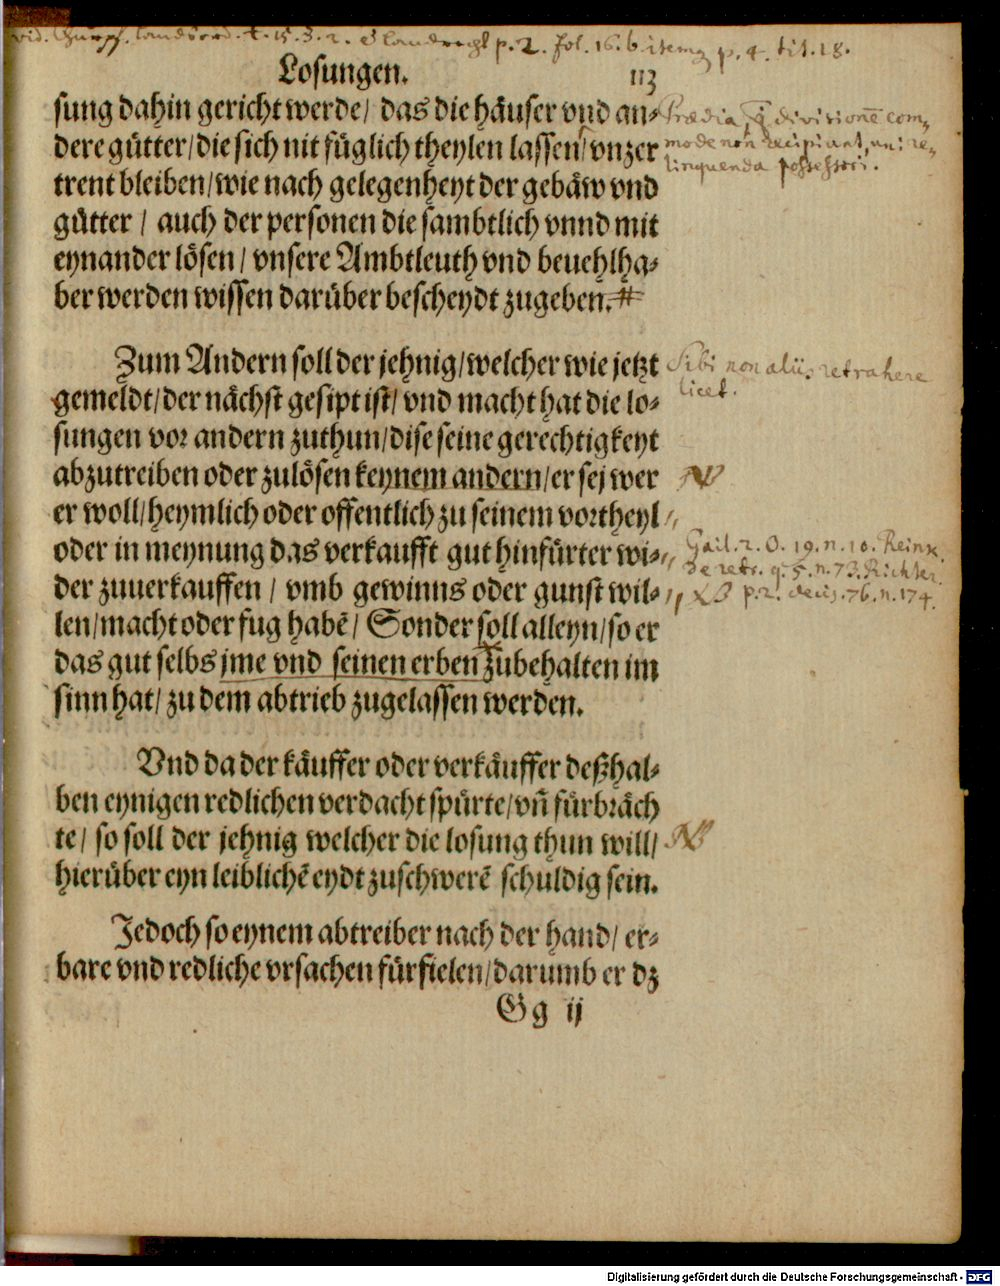 vid. Churpf. landsord. t. 15. 3. 2. landrecht p. 2. fol. 16. b. item p. 4. tit. 18.
Losungen. 113
sung dahin gericht werde/ das die häuser vnd an⸗
dere gütter/ die sich nit füglich theylen lassen/ vnzer
trent bleiben/ wie nach gelegenheyt der gebäw vnd
gütter / auch der personen die sambtlich vnnd mit
eynander lösen/ vnsere Ambtleuth vnd beuehlha⸗
ber werden wissen darüber bescheydt zugeben. #
Prædia, divisionē com⸗
mode non recipiant, uni re⸗
linquenda possessori.
Zum Andern soll der jehnig/ welcher wie jetzt
gemeldt/ der nächst gesipt ist/ vnd macht hat die lo⸗
sungen vor andern zuthun/ dise seine gerechtigkeyt
abzutreiben oder zulösen keynem andern/ er sej wer
er woll/ heymlich oder offentlich zu seinem vortheyl
oder in meynung das verkaufft gut hinfürter wi⸗
der zuuerkauffen / vmb gewinns oder gunst wil⸗
len/ macht oder fug habē/ Sonder soll alleyn/ so er
das gut selbs jme vnd seinen erben zubehalten im
sinn hat/ zu dem abtrieb zugelassen werden.
Sibi non aliis retrahere
licet.
Gail. 2. O. 19. n. 10. Reink.
de retr. q. 5. n. 73. Richter
p. 2. decis. 76. n. 174.
Vnd da der käuffer oder verkäuffer deßhal⸗
ben eynigen redlichen verdacht spürte/ vñ fürbräch
te/ so soll der jehnig welcher die losung thun will/
hierüber eyn leiblichē eydt zuschwerē schuldig sein.
Jedoch so eynem abtreiber nach der hand/ er⸗
bare vnd redliche vrsachen fürfielen/ darumb er dz
Gg ij
Digitalisierung gefördert durch die Deutsche Forschungsgemeinschaft - DFG